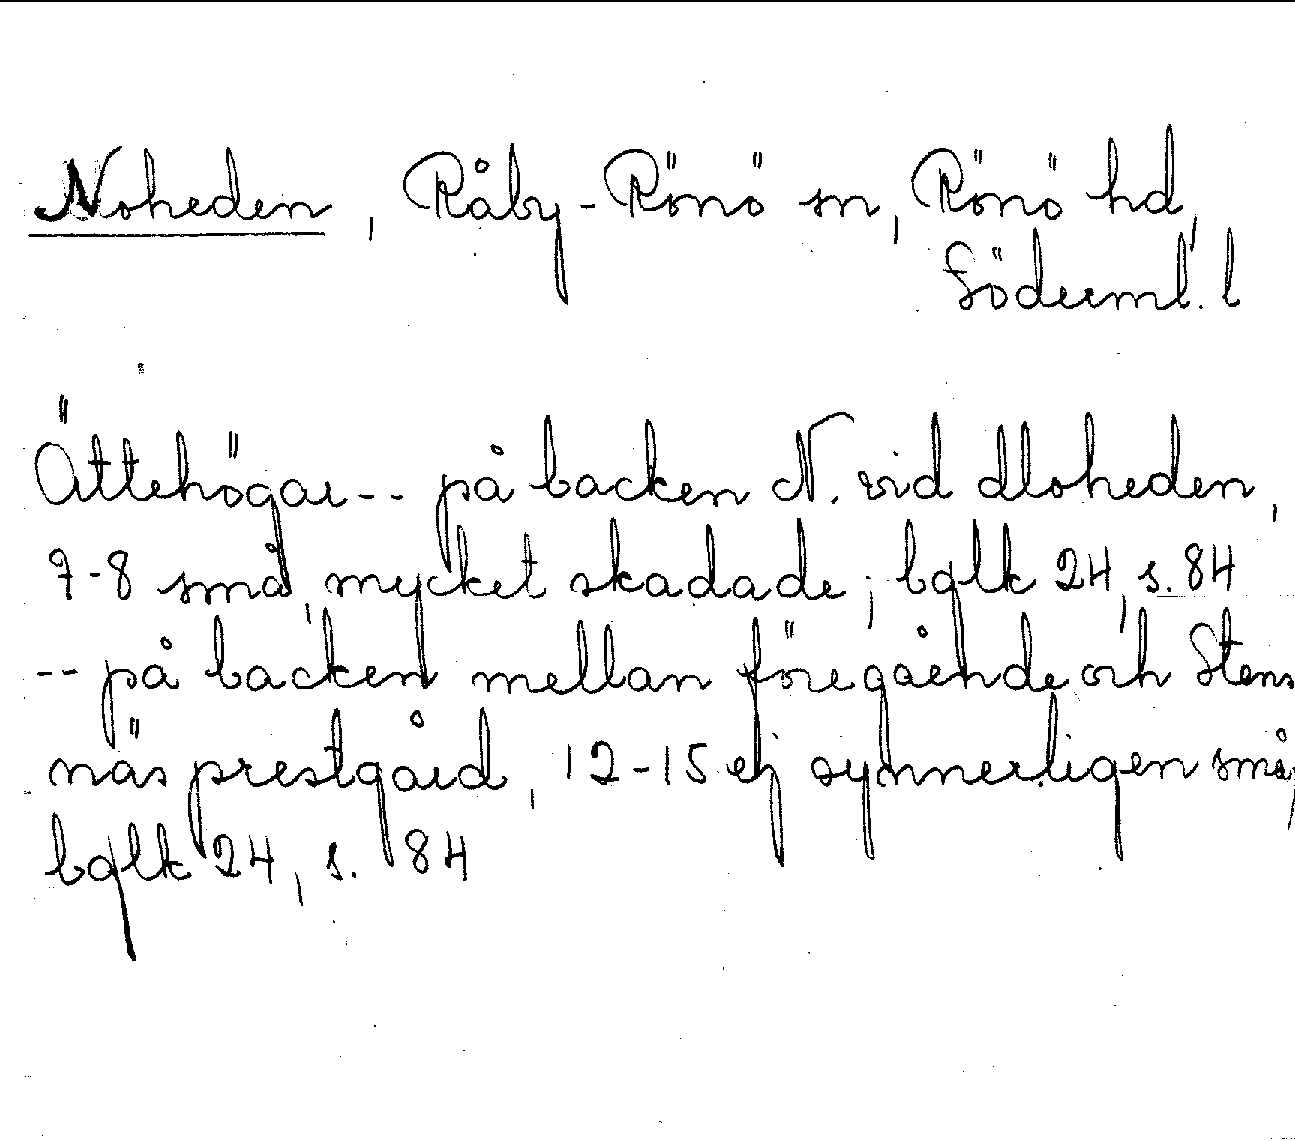 Noheden, Råby-Rönö sn, Rönö hd,
Söderml. l
Ättehögar -- på backen N. vid Noheden,
7-8 små, mycket skadade; bglk 24, s. 84
-- på backen mellan föregående och Stens
näs prestgård, 12-15 ej synnerligen små,
bglk 24, s. 84